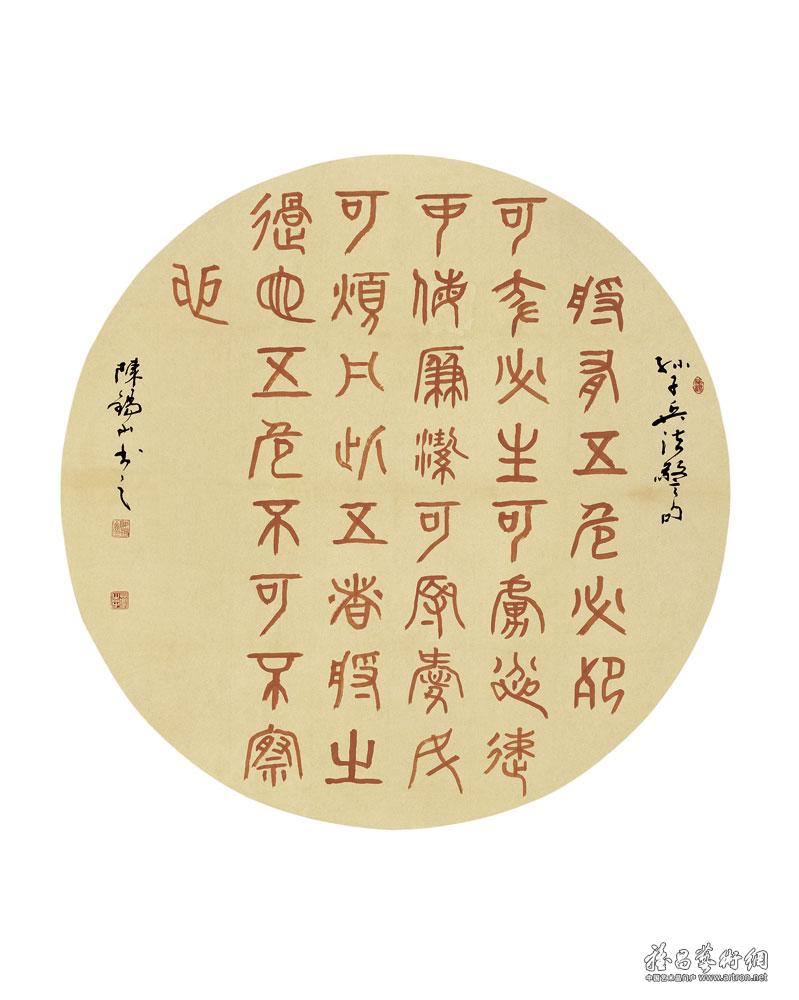 孙子兵法警句
將有五危必死
可殺必生可虜忿速
可侮廉潔可辱愛民
可煩凡此五者將之
過也五危不可不察
也
陳錫山书之
雅昌藝術網
中国艺术品门户 www.artron.net